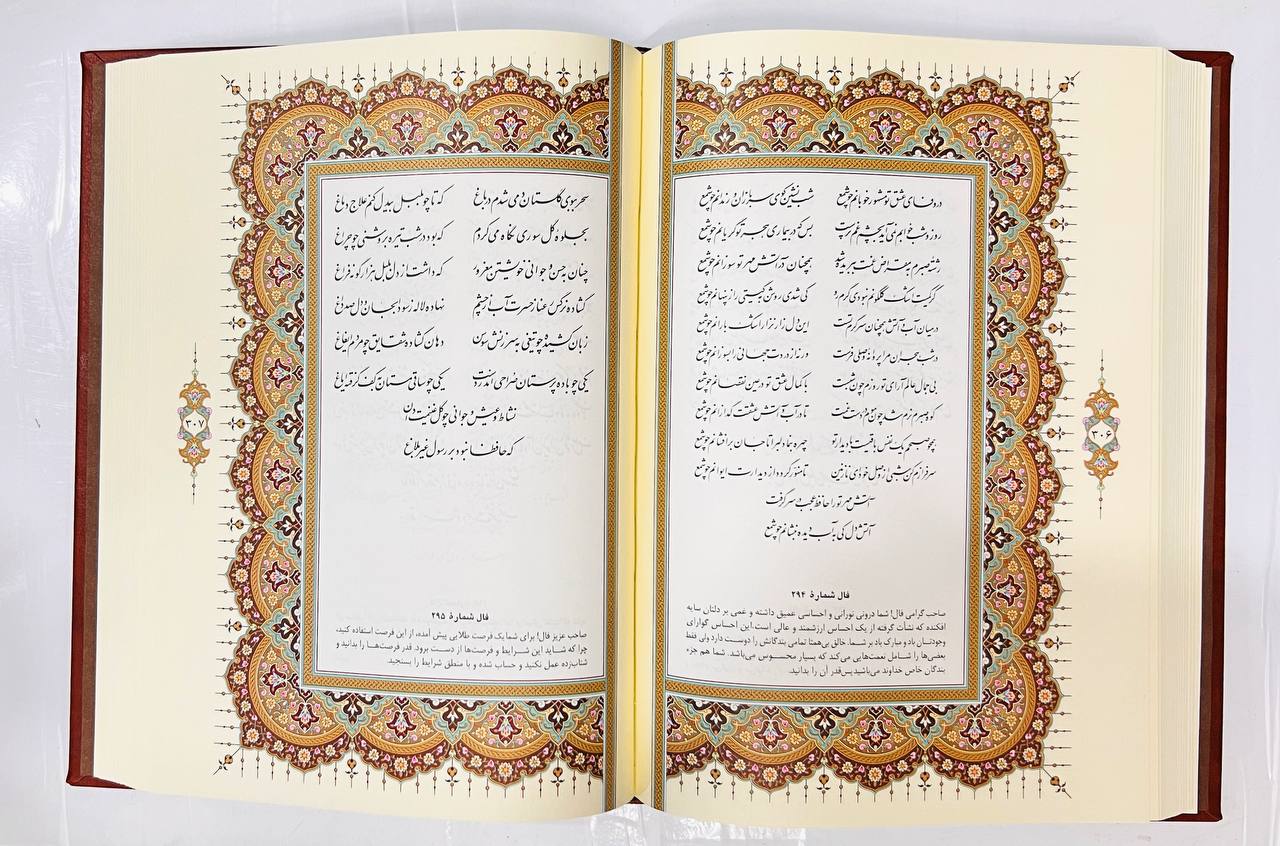 در وفای عشق تو مشهور خوبانم چو شمع شب نشین کوی سربازان و رندانم چو شمع
روز و شب خوابم نمی آید به چشم غم پرست بس که در بیماری هجر تو گریانم چو شمع
رشته صبرم به مقراض غمت ببریده شد همچنان در آتش مهر تو سوزانم چو شمع
گر کمیت اشک گلگونم نبودی گرم رو کی شدی روشن به گیتی راز پنهانم چو شمع
در میان آب و آتش همچنان سرگرم تست این دل زار نزار اشک بارانم چو شمع
در شب هجران مرا پروانه وصلی فرست ورنه از دردت جهانی را بسوزانم چو شمع
بی جمال عالم آرای تو روزم چون شبست با کمال عشق تو در عین نقصانم چو شمع
کوه صبرم نرم شد چون موم در دست غمت تا در آب و آتش عشقت گدازانم چو شمع
همچو صبحم یک نفس باقیست با دیدار تو چهره بنما دلبرا تا جان برافشانم چو شمع
سرفرازم کن شبی از وصل خود ای نازنین تا منور گردد از دیدارت ایوانم چو شمع
آتش مهر تو را حافظ عجب در سر گرفت
آتش دل کی به آب دیده بنشانم چو شمع
فال شمارهٔ ۲۹۴
صاحب گرامی فال! شما درونی نورانی و احساسی عمیق داشته و غمی بر دلتان سایه
افکنده که نشأت گرفته از یک احساس ارزشمند و عالی است. این احساس گوارای
وجودتان باد و مبارک باد بر شما. خالق بی‌همتا تمامی بندگانش را دوست دارد ولی فقط
بعضی‌ها را شامل نعمت‌هایی می‌کند که بسیار محسوس می‌باشد. شما هم جزء
بندگان خاص خداوند می‌باشید پس قدر آن را بدانید.
۳۰۶
سحر به بوی گلستان دمی شدم در باغ که تا چو بلبل بیدل کنم علاج دماغ
به جلوه گل سوری نگاه می کردم که بود در شب تیره به روشنی چو چراغ
چنان به حسن و جوانی خویشتن مغرور که داشت از دل بلبل هزار گونه فراغ
گشاده نرگس رعنا ز حسرت آب از چشم نهاده لاله ز سودا به جان و دل صد داغ
زبان کشیده چو تیغی به سرزنش سوسن دهان گشاده شقایق چو مردم ایغاغ
یکی چو باده پرستان صراحی اندر دست یکی چو ساقی مستان به کف گرفته ایاغ
نشاط و عیش و جوانی چو گل غنیمت دان
که حافظا نبود بر رسول غیر بلاغ
فال شمارهٔ ۲۹۵
صاحب عزیز فال! برای شما یک فرصت طلایی پیش آمده، از این فرصت استفاده کنید،
چرا که شاید این شرایط و فرصت‌ها از دست برود. قدر فرصت‌ها را بدانید و
شتاب‌زده عمل نکنید و حساب شده و با منطق شرایط را بسنجید.
۳۰۷